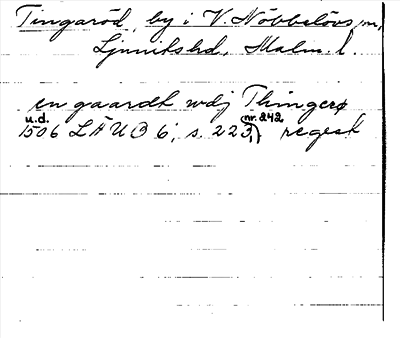 Tingaröd, by i V. Nöbbelövs sn,
Ljunitshd, Malm. l.
en gaardt wdj Thingerø
u.d. nr. 242
1506 LÄUB 6, s. 223, regest